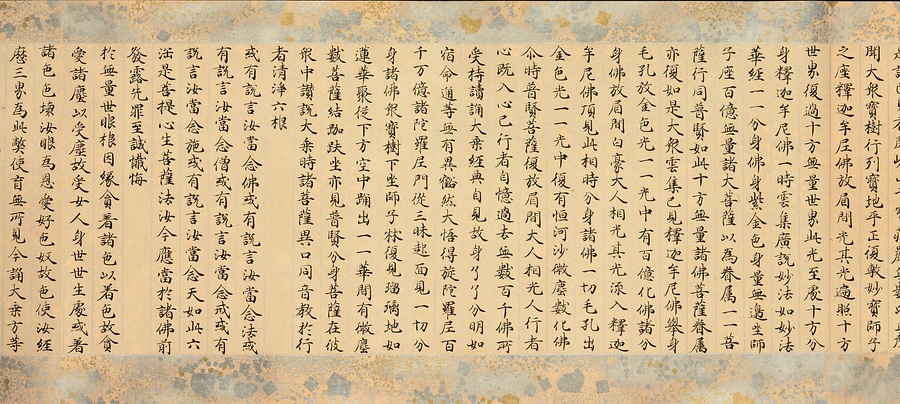 聞大衆寶樹行列寶地平正復敷妙寶師子
之座釋迦牟尼佛放眉間光其光遍照十方
世界復過十方無量世界此光至處十方分
身釋迦牟尼佛一時雲集廣說妙法如妙法
華經一一分身佛身紫金色身量無邊坐師
子座百億無量諸大菩薩以為眷属一一菩
薩行同普賢如此十方無量諸佛菩薩眷属
亦復如是大衆雲集已見釋迦牟尼佛舉身
毛孔放金色光一一光中有百億化佛諸分
身佛放眉間白豪大人相光其光流入釋迦
牟尼佛頂見此相時分身諸佛一切毛孔出
金色光一一光中復有恒河沙微塵數化佛
尒時普賢菩薩復放眉間大人相光入行者
心既入心已行者自憶過去無數百千佛所
受持讀誦大乘經典自見故身了了分明如
宿命通等無有異豁然大悟得旋陀羅尼百
千万億諸陀羅尼門從三昧起面見一切分
身諸佛衆寶樹下坐師子林復見瑠璃地如
蓮華聚從下方空中踊出一一華間有微塵
數菩薩結跏趺坐亦見普賢分身菩薩在彼
衆中讃說大乘時諸菩薩異口同音教於行
者清淨六根
或有說言汝當念佛或有說言汝當念法或
有說言汝當念僧或有說言汝當念戒或有
說言汝當念施或有說言汝當念天如此六
法是菩提心生菩薩法汝今應當於諸佛前
發露先罪至誠懺悔
於無量世眼根因緣貪著諸色以着色故貪
愛諸塵以受塵故受女人身世世生處或著
諸色色壞汝眼為恩愛好色奴故色使汝經
歷三界為此弊使盲無所見今誦大乘方等